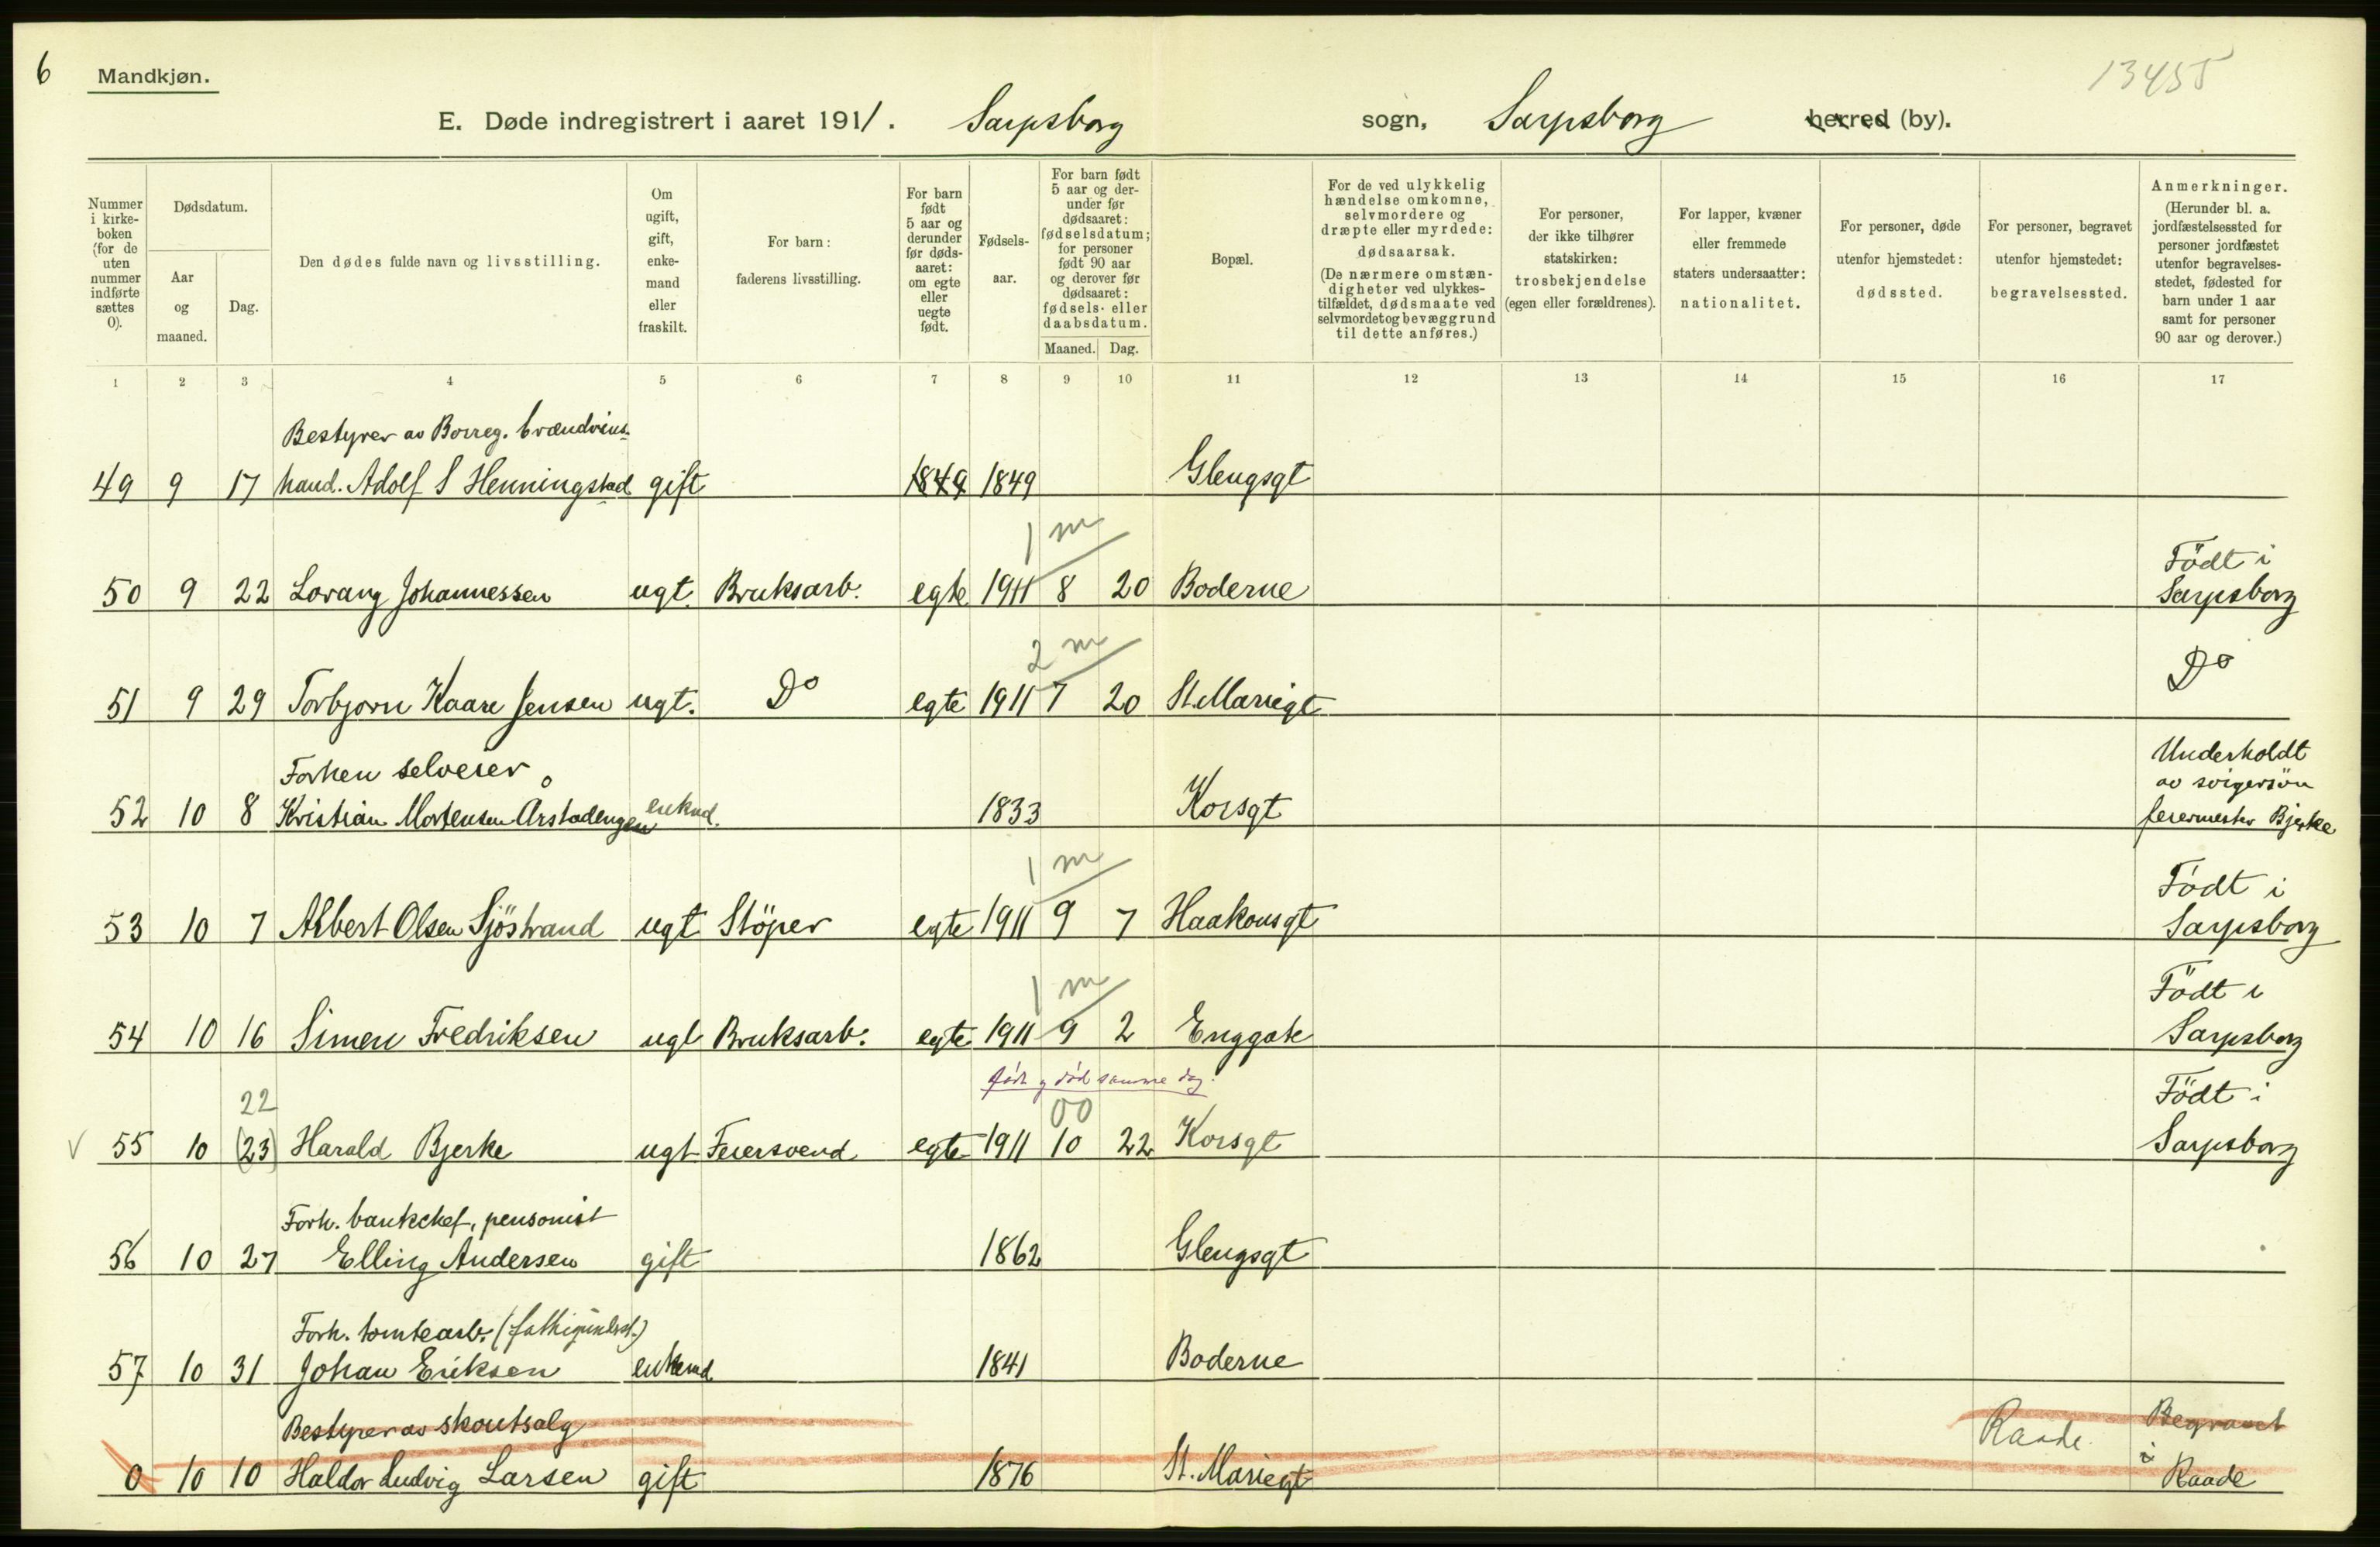 6
Mandkjøn.
13455
E. Døde indregistrert i aaret 1911. Sarpsborg sogn, Sarpsborg herred (by).
Nummer i kirke-boken (for de uten nummer indførte sættes 0).
Dødsdatum.
Aar og maaned.
Dag.
Den dødes fulde navn og livsstilling.
Om ugift, gift, enke-mand eller fraskilt.
For barn: faderens livsstilling.
For barn født 5 aar og derunder før døds-aaret: om egte eller uegte født.
Fødsels-aar.
For barn født 5 aar og der-under før dødsaaret: fødselsdatum; for personer født 90 aar og derover før dødsaaret: fødsels- eller daabsdatum.
Maaned. Dag.
Bopæl.
For de ved ulykkelig hændelse omkomne, selvmordere og dræpte eller myrdede: dødsaarsak. (De nærmere omstæn-digheter ved ulykkes-tilfældet, dødsmaate ved selvmordet og bevæggrund til dette anføres.)
For personer, der ikke tilhører statskirken: trosbekjendelse (egen eller forældrenes).
For lapper, kvæner eller fremmede staters undersaatter: nationalitet.
For personer, døde utenfor hjemstedet: dødssted.
For personer, begravet utenfor hjemstedet: begravelsessted.
Anmerkninger. (Herunder bl. a. jordfæstelsessted for personer jordfæstet utenfor begravelses-stedet, fødested for barn under 1 aar samt for personer 90 aar og derover.)
1 2 3 4 5 6 7 8 9 10 11 12 13 14 15 16 17
Bestyrer av Borreg. brændvins-
49 9 17 hand. Adolf S Henningstad gift 1849 1849 Glengsgt
1 m
Födt i
50 9 22 Lorang Johannessen ugt. Bruksarb. egte 1911 8 20 Boderne Sarpsborg
2 m
51 9 29 Torbjorn Kaare Jensen ugt. Do egte 1911 7 20 St. Mariegt Do
Forhen selveier
Underholdt
av svigersön
52 10 8 Kristian Mortensen Årstadengen enkmd. 1833 Korsgt feiermester Bjerke
1 m
Födt i
53 10 7 Albert Olsen Sjöstrand ugt Stöper egte 1911 9 7 Haakonsgt Sarpsborg
1 m
Födt i
54 10 16 Simen Fredriksen ugt Bruksarb. egte 1911 9 2 Enggate Sarpsborg
född og död samme dag.
22 00
Födt i
V 55 10 (23) Harald Bjerke ugt Feiersvend egte 1911 10 22 Korsgt Sarpsborg
Forh. bankchef, pensonist
56 10 27 Elling Andersen gift 1862 Glengsgt
Forh. tomtearb.
57 10 31 Johan Eriksen enkemd 1841 Boderne
Bestyrer av skoutsalg Raade. Begravet
0 10 10 Haldor Ludvig Larsen gift 1876 St. Mariegt i Raade